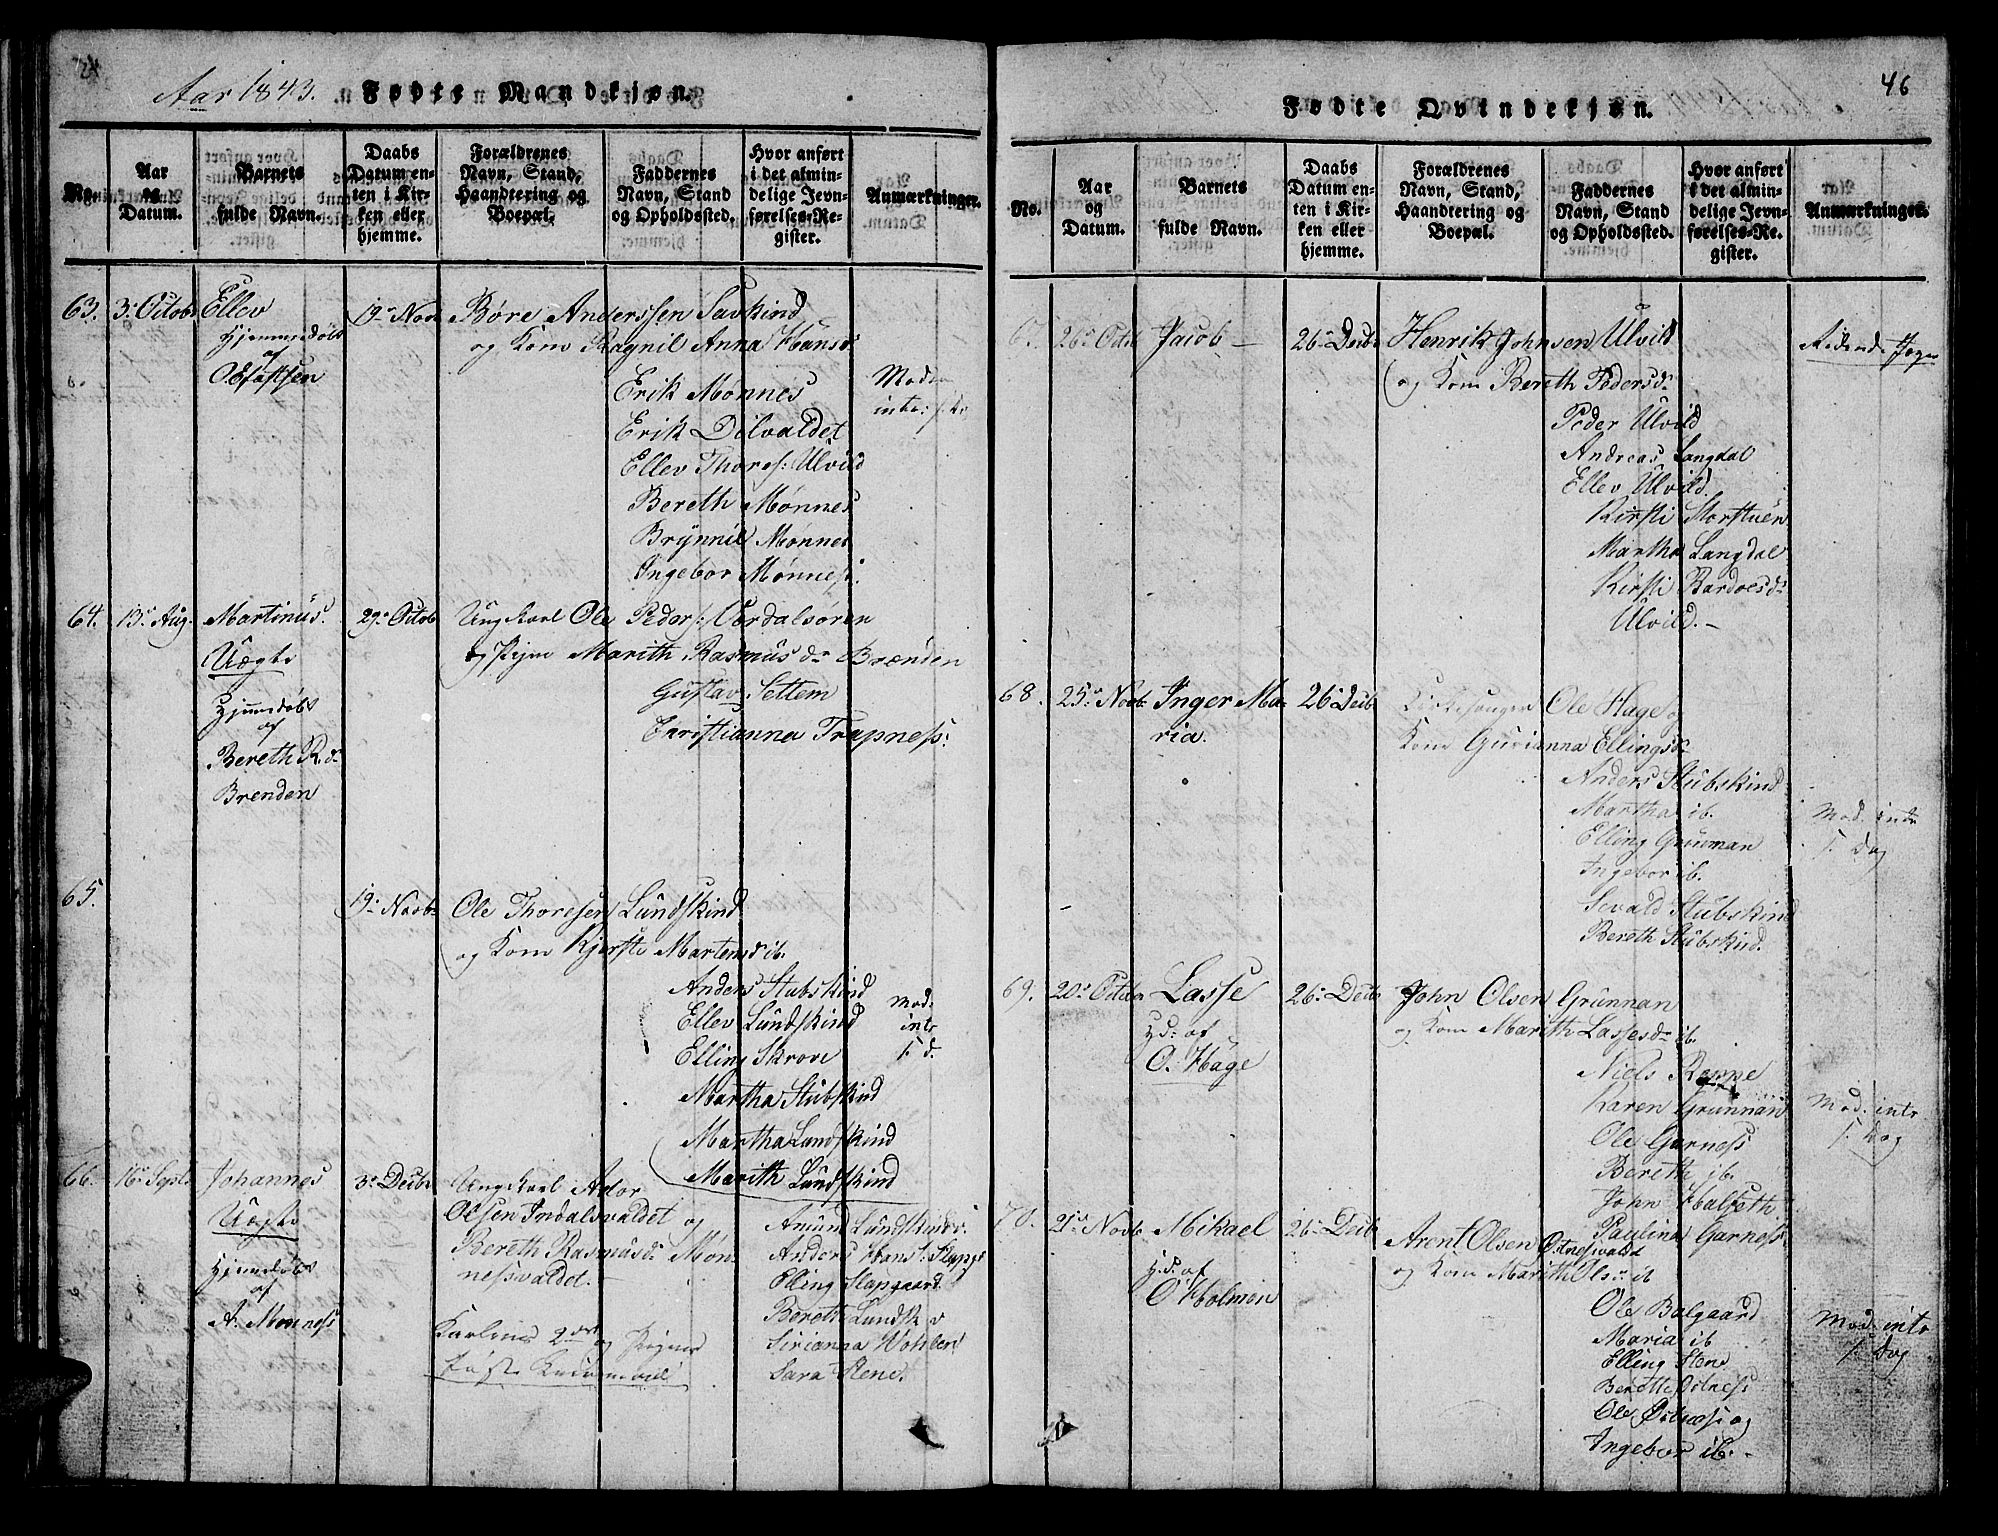 Aar 1843. Fødte Mandkjøn.
No.
Aar og Datum.
Barnets fulde Navn.
Daabs Datum enten i Kirken eller hjemme.
Forældrenes Navn, Stand, Haandtering og Boepæl.
Faddernes Navn, Stand og Opholdssted.
Hvor anført i det almindelige Jevnførelses-Register.
Anmærkninger.
63. 3. Octob. Ellev 19. Nov. Børe Anderssen Savkind
Hjemmedøbt og Kom Ragnil Anna Hansd.
af
Olsfattsen
Erik Mønnes
Erik Dilvaldet
Ellev Thores: Ulvild
Bereth Mønnes
Brynnil Mønnes
Ingebor Mønnes
64. 13. Aug. Martinus. 29. Octob. Ungkarl Ole Peders: Værdalsøren
Uægte og Pigen Marith Rasmusd. Brænden
Hjemdøbt
af
Bereth R.d.
Brenden
Gustav Settem
Christianna Trapness:
65. 19. Novb. Ole Thoresen Lundskind
og Kone Kjersti Martensd. ib.
Anders Stubskind
Ellev Lundskind
Elling Skrove
Martha Stubskind
Martha Lundskind
Marith Lundskind
Mod.
intr
66. 16. Septr. Johannes 3. Decb. Ungkarl Ador
Uægte Olsen Indalsvaldet og
Bereth Rasmusd. Mønnessvaldet.
Hjemdøbt
af
A. Mønness
Amund Lundskind
Anders Hans: Slapg
Elling Slapgaard
Bereth Lundsk
Sirianna Wohlen
Sara Stene.
46
Fødte Qvindekjøn.
No.
Aar og Datum.
Barnets fulde Navn.
Daabs Datum enten i Kirken eller hjemme.
Forældrenes Navn, Stand, Haandtering og Boepæl.
Faddernes Navn, Stand og Opholdssted.
Hvor anført i det almindelige Jevnførelses-Register.
Anmærkninger.
67. 26. Octb. Jacob 26. Decb. Henrik Johnsen Ulvild
og Kom Bereth Pedersd.
Peder Ulvild
Andreas Langdal
Ellev Ulvild.
Kirsti Storstuen
Martha Langdal
Kirsti Bardoesd.
Ulvild.
68. 25. Novb. Inger Maria. 26. Decb. Kirkesanger Ole Hage og
Kone Gurianna Ellingsd.
Anders Stubskind
Martha ib.
Elling Grunnan
Ingebor ib.
Sevald Stubskind
Bereth Stubskind.
Mod. intr
1. Dag
69. 20. Octbr. Lasse 26. Decb. John Olsen Grunnan
H.d. af og Kone Marith Lassesd. ib.
O. Hage
Niels Renne
Karen Grunnan
Ole Garness
Bereth ib.
John Halseth
Paulina Garness
Mod. intr
1. Dag
70. 21. Novb. Mikael 26. Decb. Arent Olsen Østnessvaldt
H.d. af og Kone Marith Olsd. ib
O Holmen
Ole Balgaard
Maria ib
Elling Stene
Berethe Østness
Ole Østness og
Ingebor ib.
Mod. intr
1. Dag